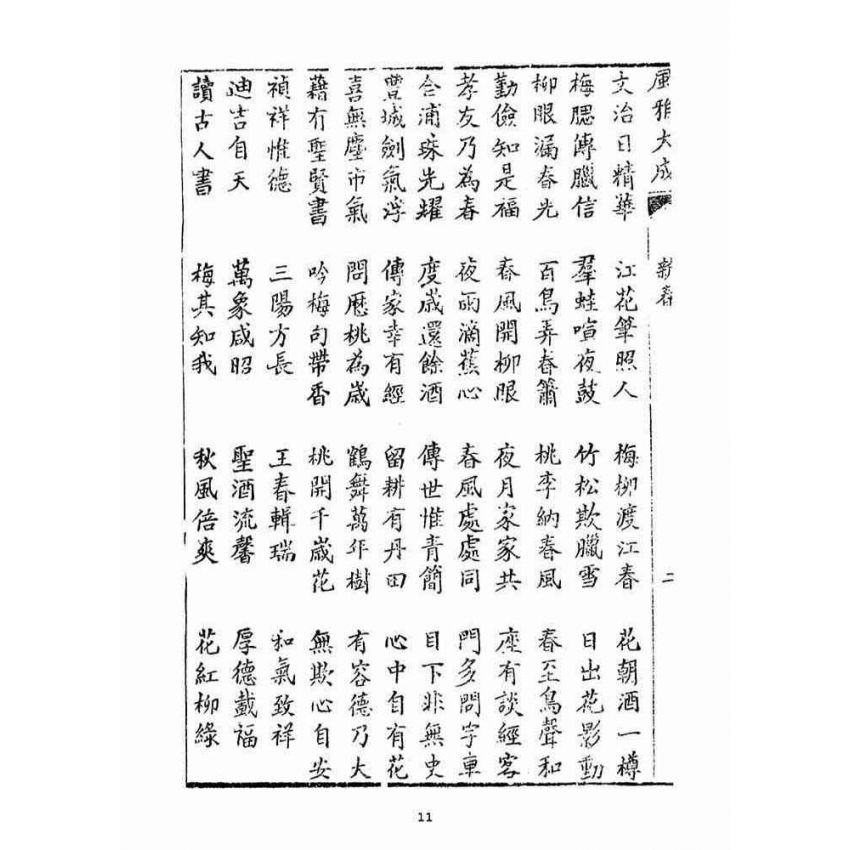 風雅大成 新春 二
文治日精華 江花筆照人 梅柳渡江春 花朝酒一樽
梅腮傳臘信 羣蛙喧夜鼓 竹松欺臘雪 日出花影動
柳眼漏春光 百鳥弄春簫 桃李納春風 春至鳥聲和
勤儉知是福 春風開柳眼 夜月家家共 座有談經客
孝友乃為春 夜雨滴蕉心 春風處處同 門多問字車
合浦珠光耀 度歲還餘酒 傳世惟青簡 目下非無史
豐城劍氣浮 傳家幸有經 留耕有丹田 心中自有花
喜無塵市氣 問歷桃為歲 鶴舞萬年樹 有容德乃大
藉有聖賢書 吟梅句帶香 桃開千歲花 無欺心自安
禎祥惟德 三陽方長 王春輯瑞 和氣致祥
迪吉自天 萬象咸昭 聖酒流馨 厚德載福
讀古人書 梅其知我 秋風倍爽 花紅柳綠
11